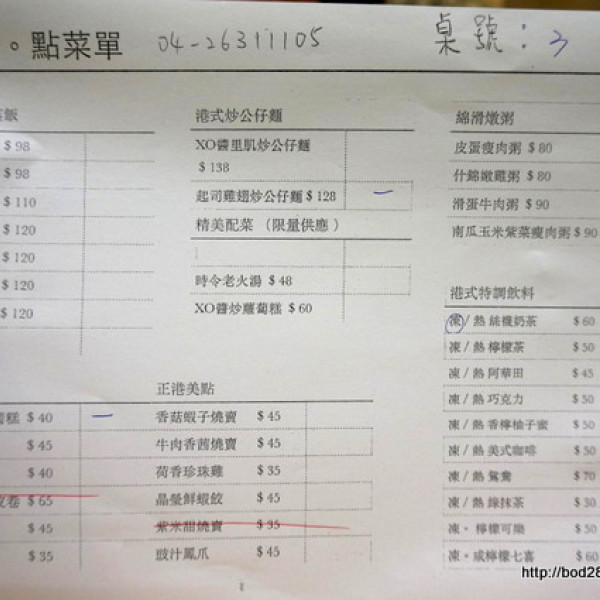 。點菜單 04-26311105 桌號：3
飯
$ 98
$ 98
$ 110
$ 120
$ 120
$ 120
$ 120
港式炒公仔麵
XO醬里肌炒公仔麵
$ 138
起司雞翅炒公仔麵 $ 128 一
精美配菜（限量供應）
時令老火湯 $ 48
XO醬炒蘿蔔糕 $ 60
綿滑燉粥
皮蛋瘦肉粥 $ 80
什錦嫩雞粥 $ 80
滑蛋牛肉粥 $ 90
南瓜玉米紫菜瘦肉粥 $ 90
港式特調飲料
凍 / 熱 絲襪奶茶 $ 60
凍 / 熱 檸檬茶 $ 50
凍 / 熱 阿華田 $ 45
凍 / 熱 巧克力 $ 50
凍 / 熱 香檸柚子蜜 $ 50
凍 / 熱 美式咖啡 $ 50
凍 / 熱 鴛鴦 $ 70
凍 / 熱 綠抹茶 $ 30
凍。檸檬可樂 $ 50
凍。咸檸檬七喜 $ 60
糕 $ 40 一
$ 45
$ 40
卷 $ 65
$ 45
$ 35
正港美點
香菇蝦子燒賣 $ 45
牛肉香茜燒賣 $ 45
荷香珍珠雞 $ 35
晶瑩鮮蝦餃 $ 45
紫米甜燒賣 $ 35
豉汁鳳爪 $ 45
http://bod28